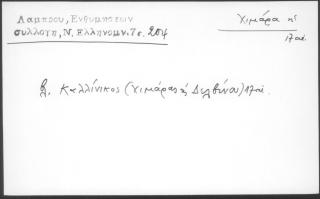 Λάμπρου, Ενθυμήσεων
συλλογή, Ν. Ελληνομν. 7 σ. 204
Χιμάρα ἡ
17 αἰ.
β. Καλλίνικος (Χιμάρας ἢ Δελβίνου) 17 αἰ.